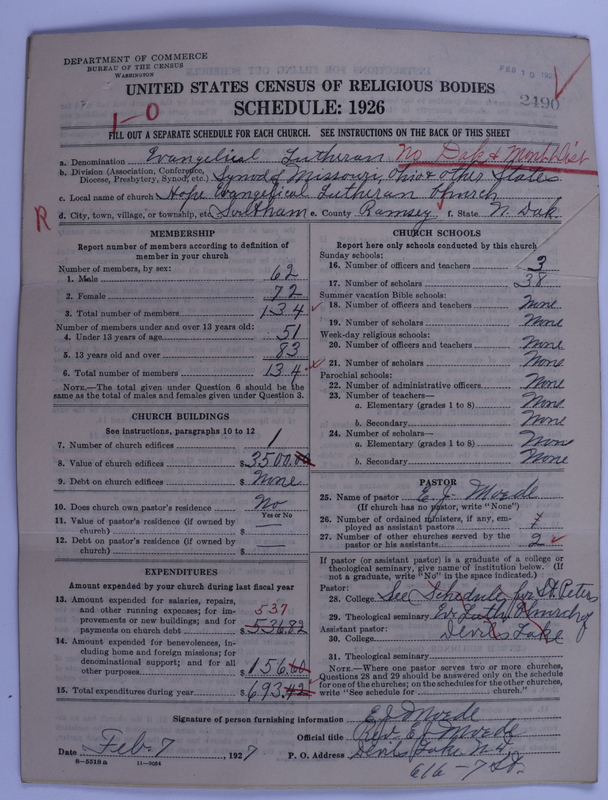 DEPARTMENT OF COMMERCE
BUREAU OF THE CENSUS
WASHINGTON
FEB 10 192
UNITED STATES CENSUS OF RELIGIOUS BODIES
SCHEDULE: 1926
2490
1-0
FILL OUT A SEPARATE SCHEDULE FOR EACH CHURCH. SEE INSTRUCTIONS ON THE BACK OF THIS SHEET
a. Denomination Evangelical Lutheran No. Dak & Mont Dist
b. Division (Association, Conference, Diocese, Presbytery, Synod, etc.) Synod of Missouri, Ohio & other States
c. Local name of church Hope Evangelical Lutheran Church
R
d. City, town, village, or township, etc. e. County Ramsey f. State N. Dak.
MEMBERSHIP
Report number of members according to definition of
member in your church
Number of members, by sex:
1. Male 62
2. Female 72
3. Total number of members 134
Number of members under and over 13 years old:
4. Under 13 years of age 51
5. 13 years old and over 83
6. Total number of members 134
NOTE.—The total given under Question 6 should be the
same as the total of males and females given under Question 3.
CHURCH BUILDINGS
See instructions, paragraphs 10 to 12
7. Number of church edifices 1
8. Value of church edifices $3500.00
9. Debt on church edifices $None
10. Does church own pastor's residence? No
Yes or No
11. Value of pastor's residence (if owned by
church) $ —
12. Debt on pastor's residence (if owned by
church) $ —
EXPENDITURES
Amount expended by your church during last fiscal year
13. Amount expended for salaries, repairs,
and other running expenses; for im-
provements or new buildings; and for
payments on church debt $ 537 536.82
14. Amount expended for benevolences, in-
cluding home and foreign missions; for
denominational support; and for all
other purposes $156.60
15. Total expenditures during year $693.42
CHURCH SCHOOLS
Report here only schools conducted by this church
Sunday schools:
16. Number of officers and teachers 3
17. Number of scholars 38
Summer vacation Bible schools:
18. Number of officers and teachers None
19. Number of scholars None
Week-day religious schools:
20. Number of officers and teachers None
21. Number of scholars None
Parochial schools:
22. Number of administrative officers None
23. Number of teachers—
a. Elementary (grades 1 to 8) None
b. Secondary None
24. Number of scholars—
a. Elementary (grades 1 to 8) None
b. Secondary None
PASTOR
25. Name of pastor E. J. Moede
(If church has no pastor, write "None")
26. Number of ordained ministers, if any, em-
ployed as assistant pastors
27. Number of other churches served by the
pastor or his assistants 2
If pastor (or assistant pastor) is a graduate of a college or
theological seminary, give name of institution below. (If
not a graduate, write "No" in the space indicated.)
Pastor:
28. College See Schedule for St. Peters
29. Theological seminary Ev. Luth. Church of
Assistant pastor:
30. College Devils Lake
31. Theological seminary
NOTE.—Where one pastor serves two or more churches,
Questions 28 and 29 should be answered only on the schedule
for one of the churches; on the schedules for the other churches
write "See schedule for church."
Signature of person furnishing information E. J. Moede
Official title Rev. E. J. Moede
Date Feb 7 1927 P. O. Address Devils Lake N.D.
8—5519a 11—9054
616 - 7 St.